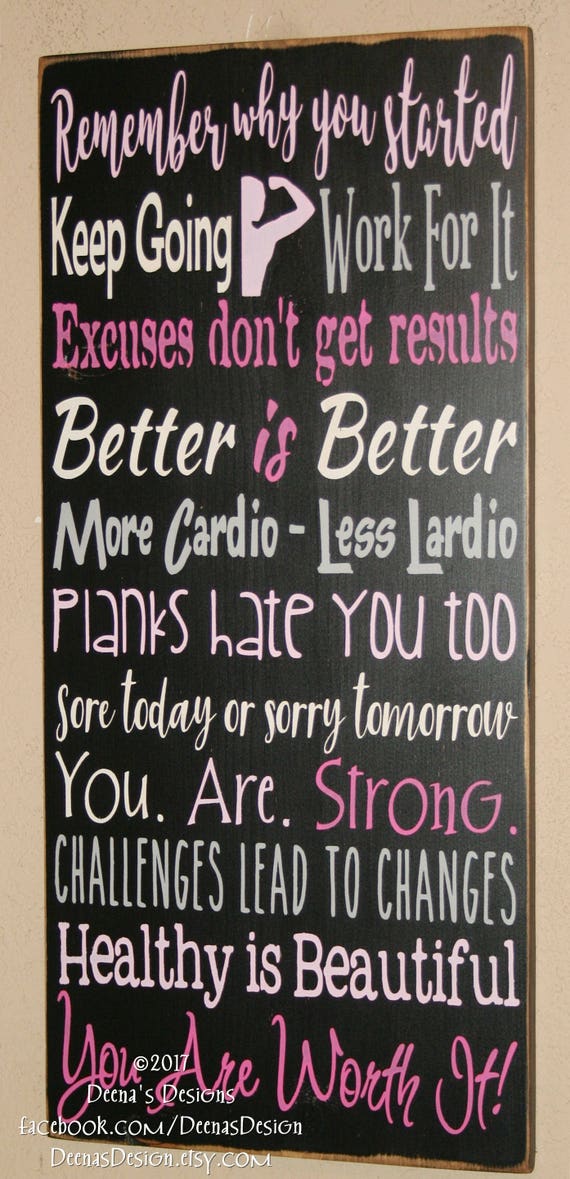 Remember why you started
Keep Going Work For It
Excuses don't get results
Better is Better
More Cardio - Less Lardio
Planks hate you too
sore today or sorry tomorrow
You. Are. Strong.
CHALLENGES LEAD TO CHANGES
Healthy is Beautiful
You Are Worth It!
©2017
Deena's Designs
facebook.com/DeenasDesign
DeenasDesign.etsy.com